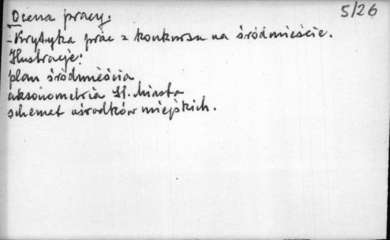 Ocena pracy: 5/26
- Krytyka prac z konkursu na śródmieście.
Ilustracje:
plan śródmieścia
aksonometria St. Miasta
schemat ośrodków miejskich.